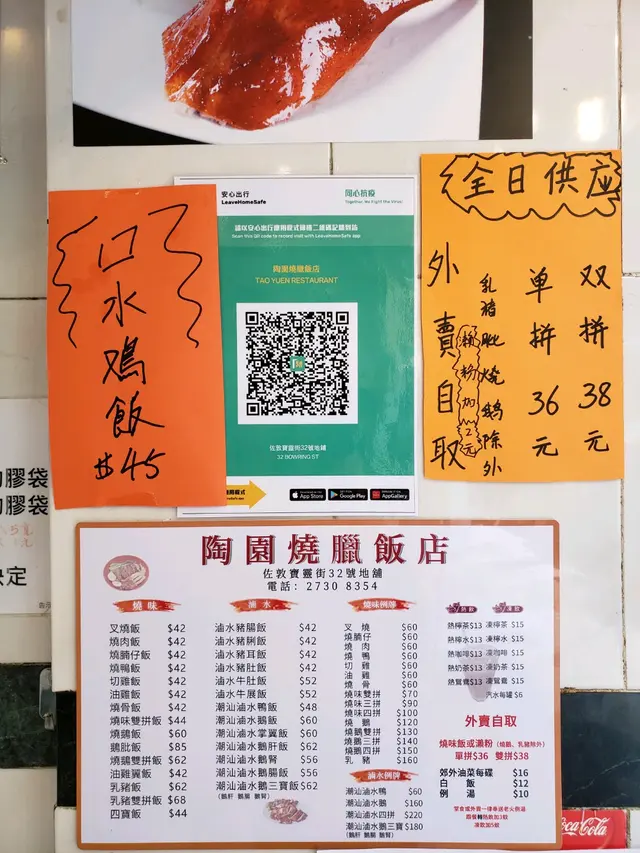 安心出行
LeaveHomeSafe
同心抗疫
Together, We Fight the Virus!
請以安心出行應用程式掃描二維碼記錄到訪
Scan this QR code to record visit with LeaveHomeSafe app
陶園燒臘飯店
TAO YUEN RESTAURANT
佐敦寶靈街32號地鋪
32 BOWRING ST
App Store
Google Play
AppGallery
口水鳮飯
$45
全日供应
外賣自取
乳豬 肶 燒鵝 除外
瀨粉加2元
单拼 36元
双拼 38元
膠袋
膠袋
決定
陶園燒臘飯店
佐敦寶靈街32號地舖
電話：2730 8354
燒味
叉燒飯 $42
燒肉飯 $42
燒腩仔飯 $42
燒鴨飯 $42
切雞飯 $42
油雞飯 $42
燒骨飯 $42
燒味雙拼飯 $44
燒鵝飯 $60
鵝肶飯 $85
燒鵝雙拼飯 $62
油雞翼飯 $42
乳豬飯 $62
乳豬雙拼飯 $68
四寶飯 $44
滷水
滷水豬腸飯 $42
滷水豬脷飯 $42
滷水豬耳飯 $42
滷水豬肚飯 $42
滷水牛肚飯 $52
滷水牛展飯 $52
潮汕滷水鴨飯 $48
潮汕滷水鵝飯 $60
潮汕滷水掌翼飯 $60
潮汕滷水鵝肝飯 $62
潮汕滷水鵝腎 $56
潮汕滷水鵝腸飯 $56
潮汕滷水鵝三寶飯 $62
(鵝肝 鵝腸 鵝腎)
燒味例牌
叉燒 $60
燒腩仔 $60
燒肉 $60
燒鴨 $60
切雞 $60
油雞 $60
燒骨 $60
燒味雙拼 $70
燒味三拼 $90
燒味四拼 $100
燒鵝 $120
燒鵝雙拼 $130
燒鵝三拼 $140
燒鵝四拼 $150
乳豬 $160
滷水例牌
潮汕滷水鴨 $60
潮汕滷水鵝 $160
潮汕滷水四拼 $220
潮汕滷水鵝三寶 $180
(鵝肝 鵝腸 鵝腎)
熱飲 凍飲
熱檸茶$13 凍檸茶 $15
熱檸水$13 凍檸水 $15
熱咖啡$13 凍咖啡 $15
熱奶茶$13 凍奶茶 $15
熱鴛鴦$13 凍鴛鴦 $15
汽水每罐 $6
外賣自取
燒味飯或瀨粉 (燒鵝、乳豬除外)
單拼$36 雙拼$38
郊外油菜每碟 $16
白飯 $12
例湯 $10
堂食或外賣一律奉送老火例湯
跟餐轉熱飲加3蚊
凍飲加5蚊
Coca-Cola